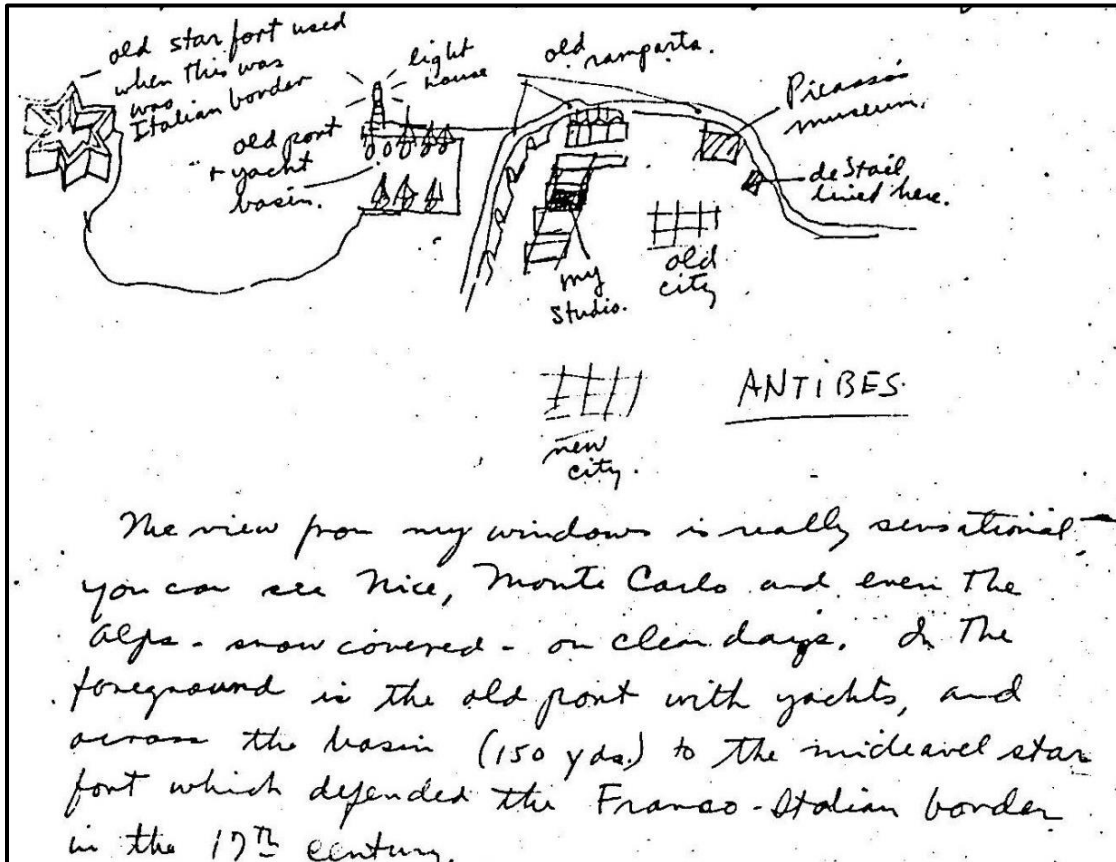 old star fort used
when this was
was
Italian border
light
house
old port
+ yacht
basin.
old
ramparts.
Picasso's
museum.
de Stael
lived here.
my
studio.
old
city
new
city.
ANTIBES
The view from my windows is really sensational -
you can see Nice, Monte Carlo and even the
Alps - snow covered - on clear days. In the
foreground is the old port with yachts, and
across the basin (150 yds.) to the mideavel star
fort which defended the Franco-Italian border
in the 17th century.